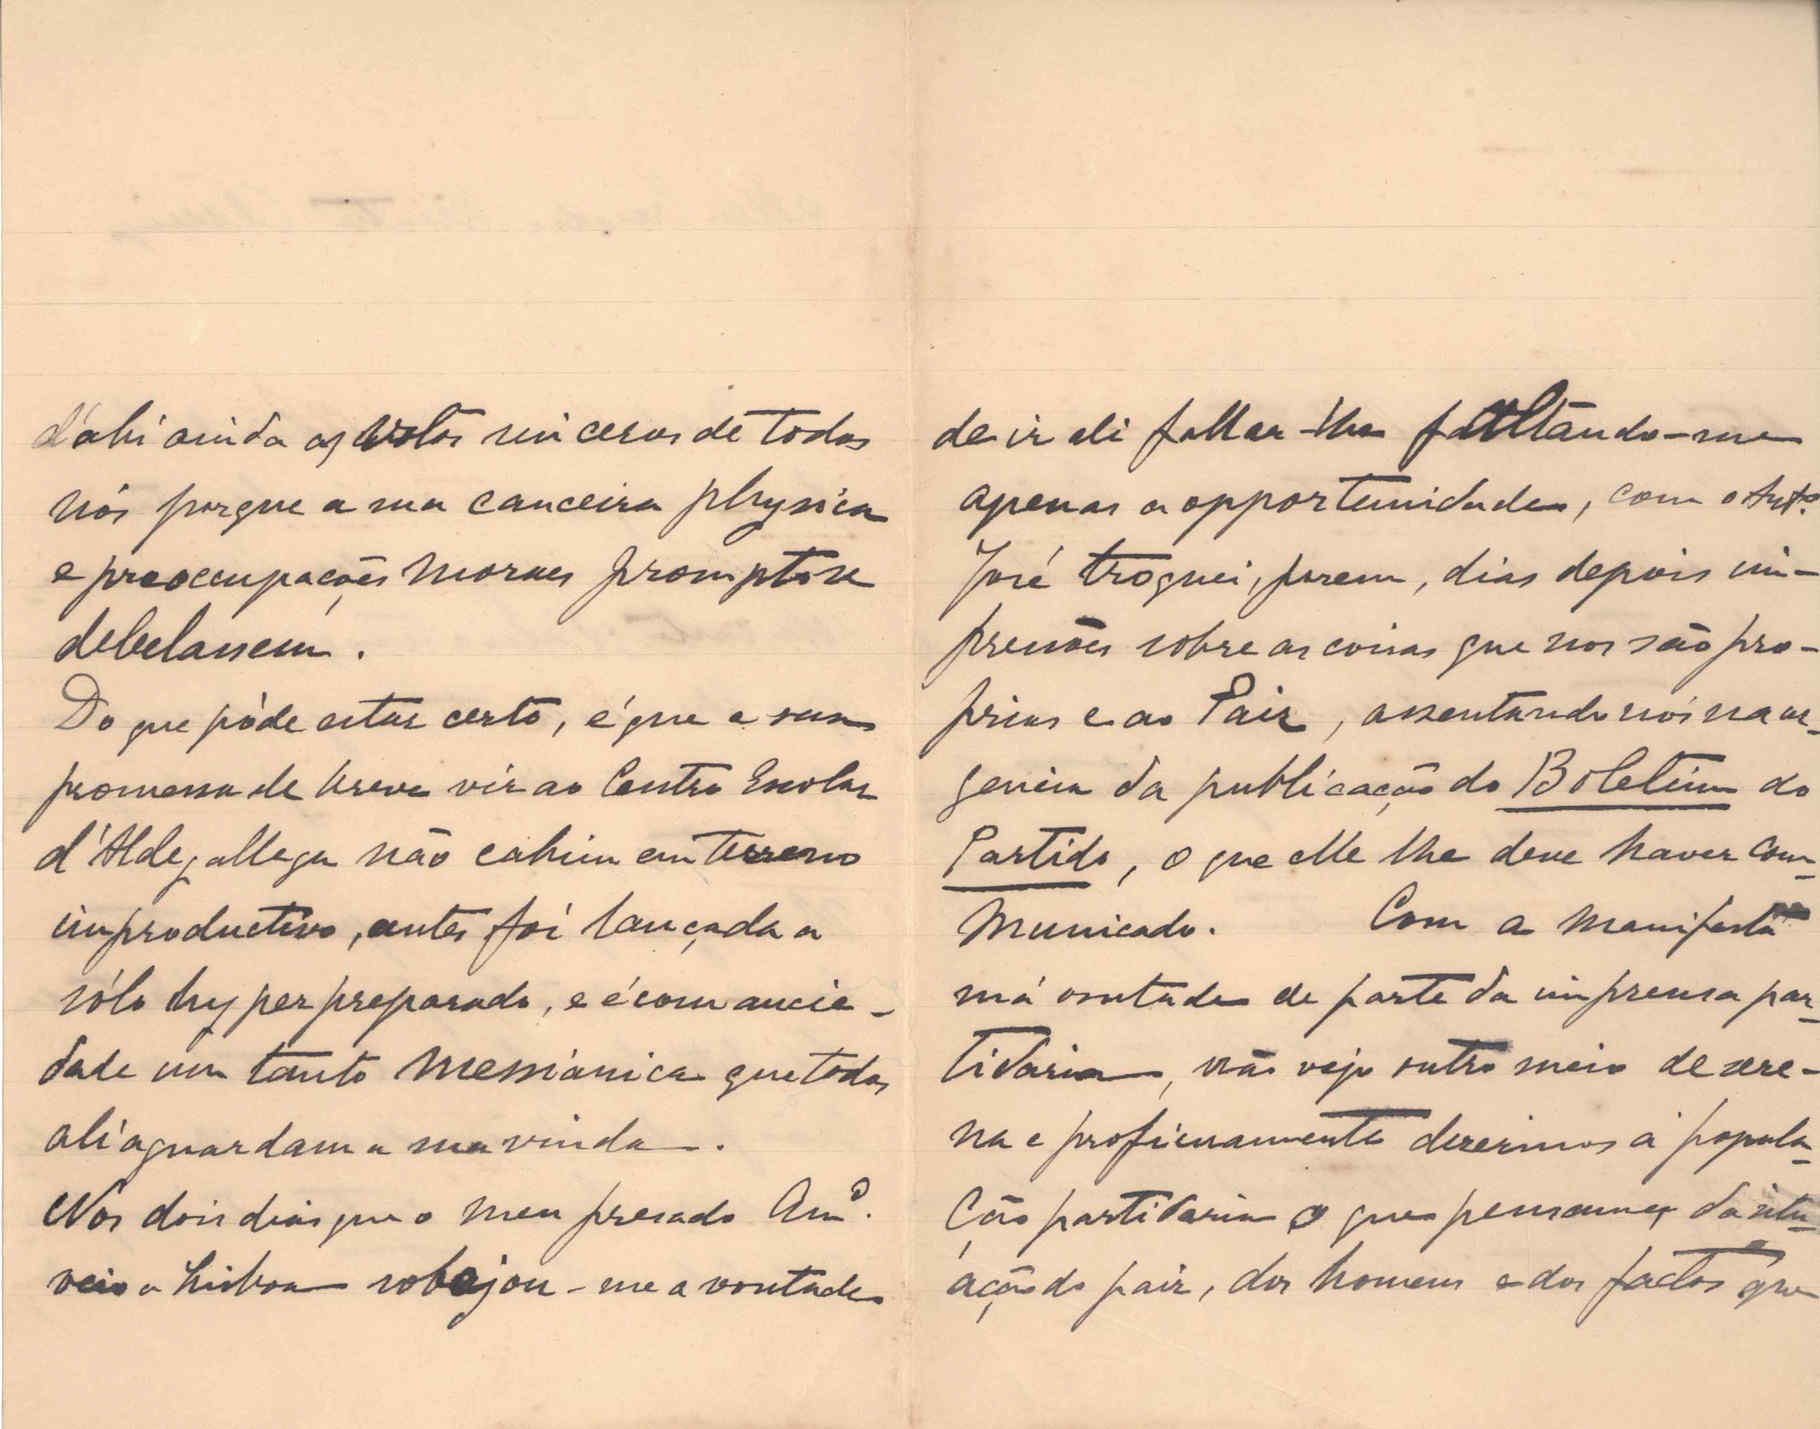 d'ahi ainda os votos sinceros de todos
nós porque a sua canceira physica
e preoccupações moraes prompto se
debelassem.
Do que póde estar certo, é que a sua
promessa de breve vir ao Centro Escolar
d'Aldegallega não cahiu em terreno
improductivo, antes foi lançada a
sólo hyper preparado, e é com ancie-
dade um tanto messianica que todos
ali aguardam a sua vinda.
Nos dois dias que o meu presado Amº.
veio a Lisboa sobejou-me a vontade
de ir ali fallar-lhe faltando-me
apenas a opportunidade, com o Antº.
José troquei, porem, dias depois im-
pressões sobre as coisas que nos são pro-
prias e ao Paiz, assentando nós na ur-
gencia da publicação do Boletim do
Partido, o que elle lhe deve haver com-
municado. Com a manifesta
má vontade de parte da imprensa par-
tidaria, não vejo outro meio de sere-
na e proficuamente dizermos á popula-
ção partidaria o que pensamos da situ-
ação do paiz, dos homens e dos factos que